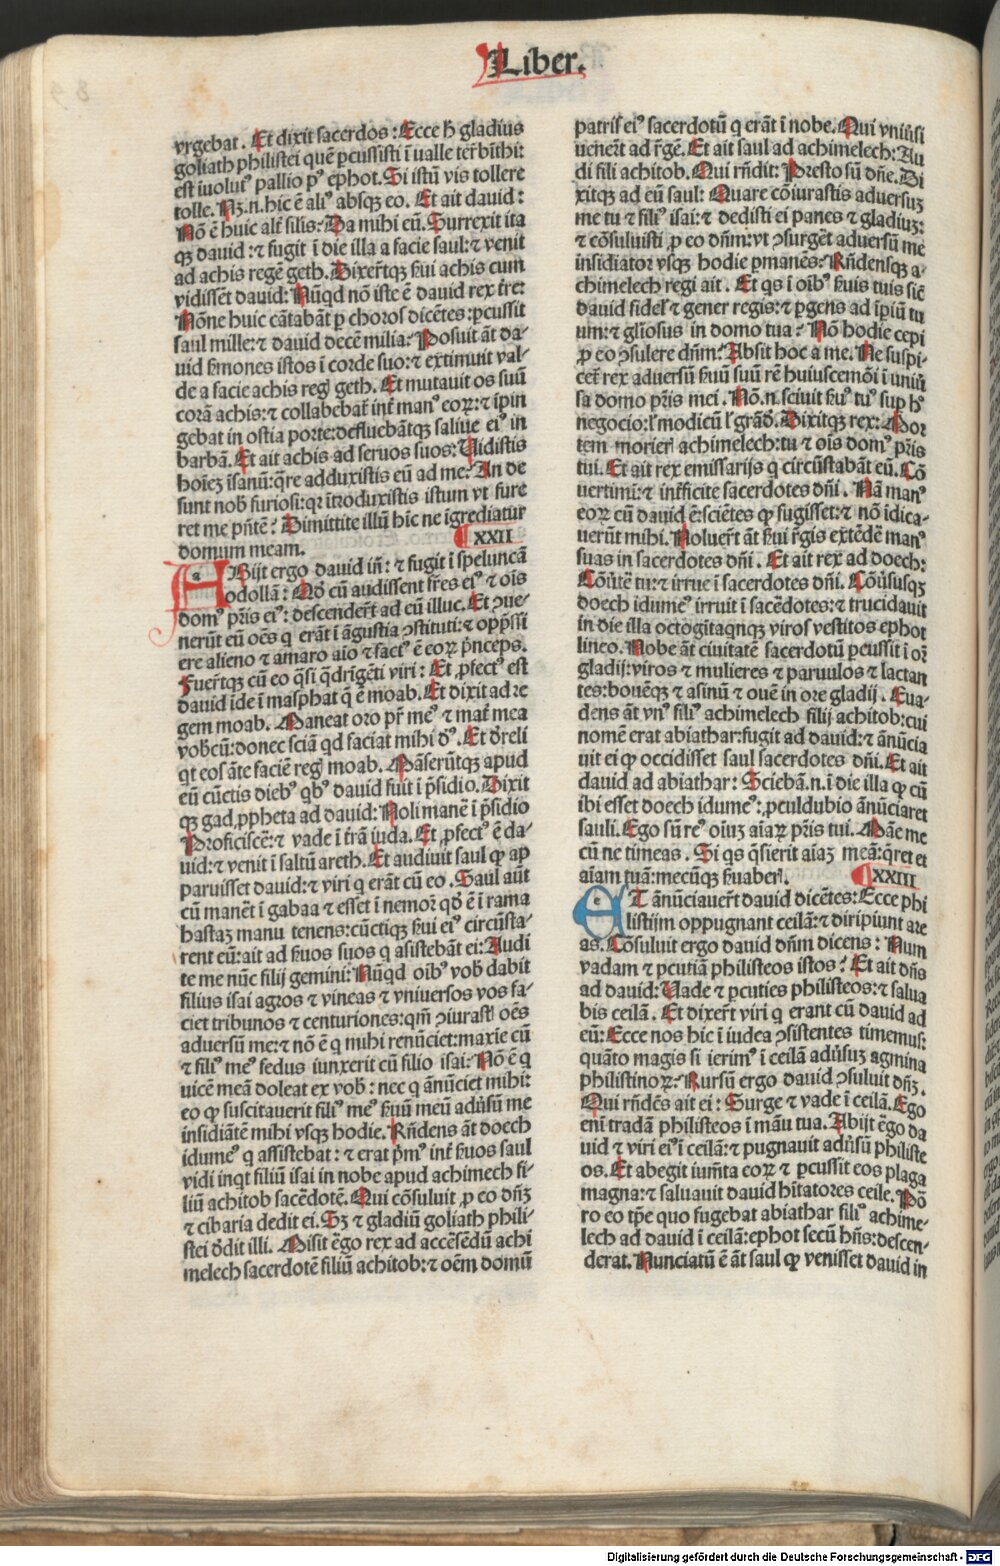 Liber.
vrgebat. Et dixit sacerdos: Ecce h̄ gladius
goliath philistei quē ꝑcussisti ī ualle ter̄bīthi:
est īuolutꝰ pallio pꝰ ephot. Si istū vis tollere
tolle. Nꝫ.n. hic ē aliꝰ absqꝫ eo. Et ait dauid:
Nō ē huic alt̄ silis: Da mihi eū. Surrexit ita
qꝫ dauid: ⁊ fugit ī die illa a facie saul: ⁊ venit
ad achis regē geth. Dixer̄tqꝫ ẜui achis cum
vidissēt dauid: Nūqd nō iste ē dauid rex tr̄e:
Nōne huic cātabāt ꝑ choros dicētes: ꝑcussit
saul mille: ⁊ dauid decē milia: Posuit āt da-
uid ẜmones istos ī corde suo: ⁊ extimuit val-
de a facie achis reḡ geth. Et mutauit os suū
corā achis: ⁊ collabebat̄ int̄ manꝰ eoꝝ: ⁊ īpin
gebat in ostia porte: defluebātqꝫ saliue eiꝰ in
barbā. Et ait achis ad seruos suos: Uidistis
hoīeꝫ īsanū: q̄re adduxistis eū ad me: An de
sunt nob̄ furiosi: qꝛ ītroduxistis istum vt fure
ret me pn̄te? Dimittite illū hīc ne īgrediatur
domum meam. XXII
ABijt ergo dauid in̄: ⁊ fugit ī speluncā
odollā: Qd̄ cū audissent fr̄es eiꝰ ⁊ ois
domꝰ pr̄is eiꝰ: descender̄t ad eū illuc. Et ꝯue-
nerūt eū oēs q̄ erāt ī āgustia ꝯstituti: ⁊ opp̄ssi
ere alieno ⁊ amaro aīo ⁊ factꝰ ē eoꝝ p̄nceps.
Fuer̄tqꝫ cū eo q̄si q̄drīgēti viri: Et ꝓfectꝰ est
dauid īde ī masphat q̄ ē moab. Et dixit ad re
gem moab. Maneat oro pr̄ meꝰ ⁊ mat̄ mea
vob̄cū: donec sciā qd faciat mihi dꝰ. Et d̄reli
qt eos āte faciē reḡ moab. Māserūtqꝫ apud
eū cūctis diebꝰ qbꝰ dauid fuit ī p̄sidio. Dixit
qꝫ gad ꝓpheta ad dauid: Noli manē ī p̄sidio
Proficiscē: ⁊ vade ī tr̄ā iuda. Et ꝓfectꝰ ē da-
uid: ⁊ venit ī saltū areth. Et audiuit saul ꝙ ap
paruisset dauid: ⁊ viri q̄ erāt cū eo. Saul aūt
cū manēt ī gabaa ⁊ esset ī nemor̄ qd̄ ē ī rama
hastaꝫ manu tenens: cūctiqꝫ ẜui eiꝰ circūsta-
rent eū: ait ad ẜuos suos q̄ asistebāt ei: Audi
te me nūc filij gemini: Nūqd oībꝰ vob̄ dabit
filius isai agros ⁊ vineas ⁊ vniuersos vos fa-
ciet tribunos ⁊ centuriones: qm̄ ꝯiurast̄ oēs
aduersū me: ⁊ nō ē q̄ mihi renūciet: maxie cū
⁊ filiꝰ meꝰ fedus iunxerit cū filio isai: Nō ē q̄
uicē meā doleat ex vob̄: nec q̄ ānūciet mihi:
eo ꝙ suscitauerit filiꝰ meꝰ ẜuū meū adūsū me
insidiātē mihi vsqꝫ hodie. Rn̄dens āt doech
idumeꝰ q̄ assistebat: ⁊ erat p̄mꝰ int̄ ẜuos saul
vidi inqt filiū isai in nobe apud achimech fi-
liū achitob sacēdotē. Qui cōsuluit ꝓ eo dn̄ꝫ
⁊ cibaria dedit ei. Sꝫ ⁊ gladiū goliath phili-
stei d̄dit illi. Misit ēgo rex ad accēsēdū achi
melech sacerdotē filiū achitob: ⁊ oēm domū
patris eiꝰ sacerdotū q̄ erāt ī nobe. Qui vniūsi
uener̄t ad r̄gē. Et ait saul ad achimelech: Au
di fili achitob. Qui rn̄dit: Presto sū dn̄e. Di
xitqꝫ ad eū saul: Quare cōiurastis aduersuꝫ
me tu ⁊ filiꝰ isai: ⁊ dedisti ei panes ⁊ gladiuꝫ:
⁊ cōsuluisti ꝓ eo dn̄m: vt ꝯsurgēt aduersū me
insidiator vsqꝫ hodie ꝑmanēs: Rn̄densqꝫ a-
chimelech regi ait. Et qs ī oībꝰ ẜuis tuis sic̄
dauid fidel̄ ⁊ gener regis: ⁊ ꝑgens ad īpiū tu
um: ⁊ gl̄iosus in domo tua? Nō hodie cepi
ꝓ eo ꝯsulere dn̄m: Absit hoc a me. Ne suspi-
cet̄ rex aduersū ẜuū suū rē huiuscemōi ī uniū
sa domo pr̄is mei. Nō.n. sciuit ẜuꝰ tuꝰ suꝑ hꝰ
negocio: l̄ modicū l̄ grād̄. Dixitqꝫ rex: Mor
tem morier̄ achimelech: tu ⁊ oīs domꝰ pr̄is
tui. Et ait rex emissarijs q̄ circūstabāt eū. Cō
uertimī: ⁊ int̄ficite sacerdotes dn̄i. Nā manꝰ
eoꝝ cū dauid ē: sciētes ꝙ fugisset: ⁊ nō īdica-
uerūt mihi. Noluer̄t āt ẜui r̄gis extēdē manꝰ
suas in sacerdotes dn̄i. Et ait rex ad doech:
Cōūte tu: ⁊ irrue ī sacerdotes dn̄i. Cōūsusqꝫ
doech idumeꝰ irruit ī sacēdotes: ⁊ trucidauit
in die illa octogītaqnqꝫ viros vestitos ephot
lineo. Nobe āt ciuitatē sacerdotū ꝑcussit ī or̄
gladij: viros ⁊ mulieres ⁊ paruulos ⁊ lactan
tes: bouēqꝫ ⁊ asinū ⁊ ouē in ore gladij. Eua-
dens āt vnꝰ filiꝰ achimelech filij achitob: cui
nomē erat abiathar: fugit ad dauid: ⁊ ānūcia
uit ei ꝙ occidisset saul sacerdotes dn̄i. Et ait
dauid ad abiathar: Sciebā.n. ī die illa ꝙ cū
ibi esset doech idumeꝰ: ꝓculdubio ānūciaret
sauli. Ego sū reꝰ oīuꝫ aīaꝝ pr̄is tui. Māe me
cū ne timeas. Si qs q̄sierit aīaꝫ meā: q̄ret et
aīam tuā: mecūqꝫ ẜuaber̄. XXIII
ET ānūciauer̄t dauid dicētes: Ecce phi
listijm oppugnant ceilā: ⁊ diripiunt are
as. Cōsuluit ergo dauid dn̄m dicens: Num
vadam ⁊ ꝑcutiā philisteos istos? Et ait dn̄s
ad dauid: Uade ⁊ ꝑcuties philisteos: ⁊ salua
bis ceilā. Et dixer̄t viri q̄ erant cū dauid ad
eū: Ecce nos hic ī iudea ꝯsistentes timemus:
quāto magis si ierimꝰ ī ceilā adūsuꝫ agmina
philistinoꝝ: Rursū ergo dauid ꝯsuluit dn̄ꝫ.
Qui rn̄dēs ait ei: Surge ⁊ vade ī ceilā. Ego
enī tradā philisteos ī māu tua. Abijt ēgo da
uid ⁊ viri eiꝰ ī ceilā: ⁊ pugnauit adūsū philiste
os. Et abegit iumt̄a eoꝝ ⁊ ꝑcussit eos plaga
magna: ⁊ saluauit dauid hītatores ceile. Por
ro eo tꝑe quo fugebat abiathar filiꝰ achime-
lech ad dauid ī ceilā: ephot secū hn̄s: descen-
derat. Nunciatū ē āt saul ꝙ venisset dauid in
Digitalisierung gefördert durch die Deutsche Forschungsgemeinschaft - DFG